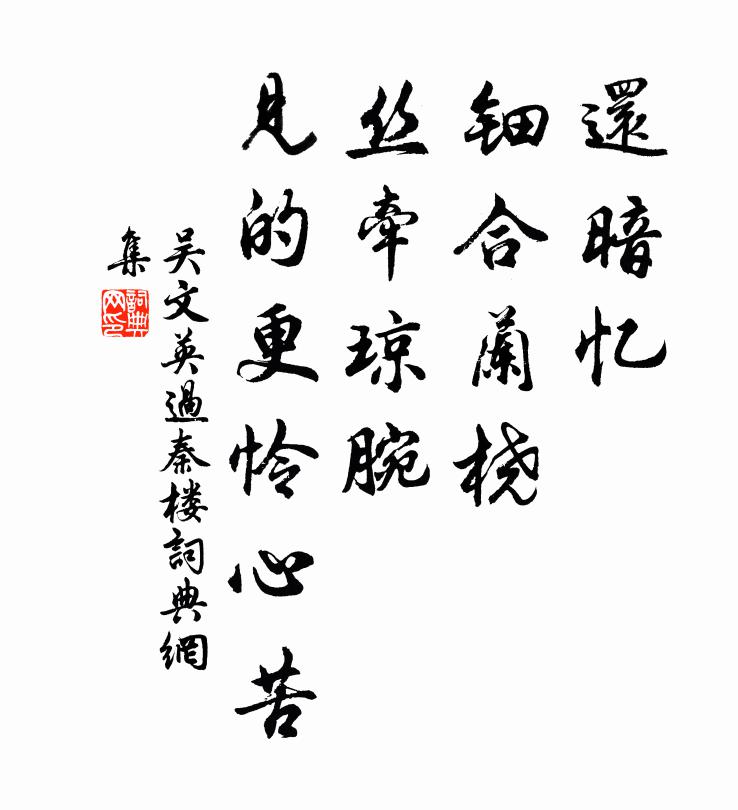 還暗忆
钿合蘭桡
丝牵琼腕
见的更怜心苦
吴文英過秦楼詞典網
集
詞典
网印